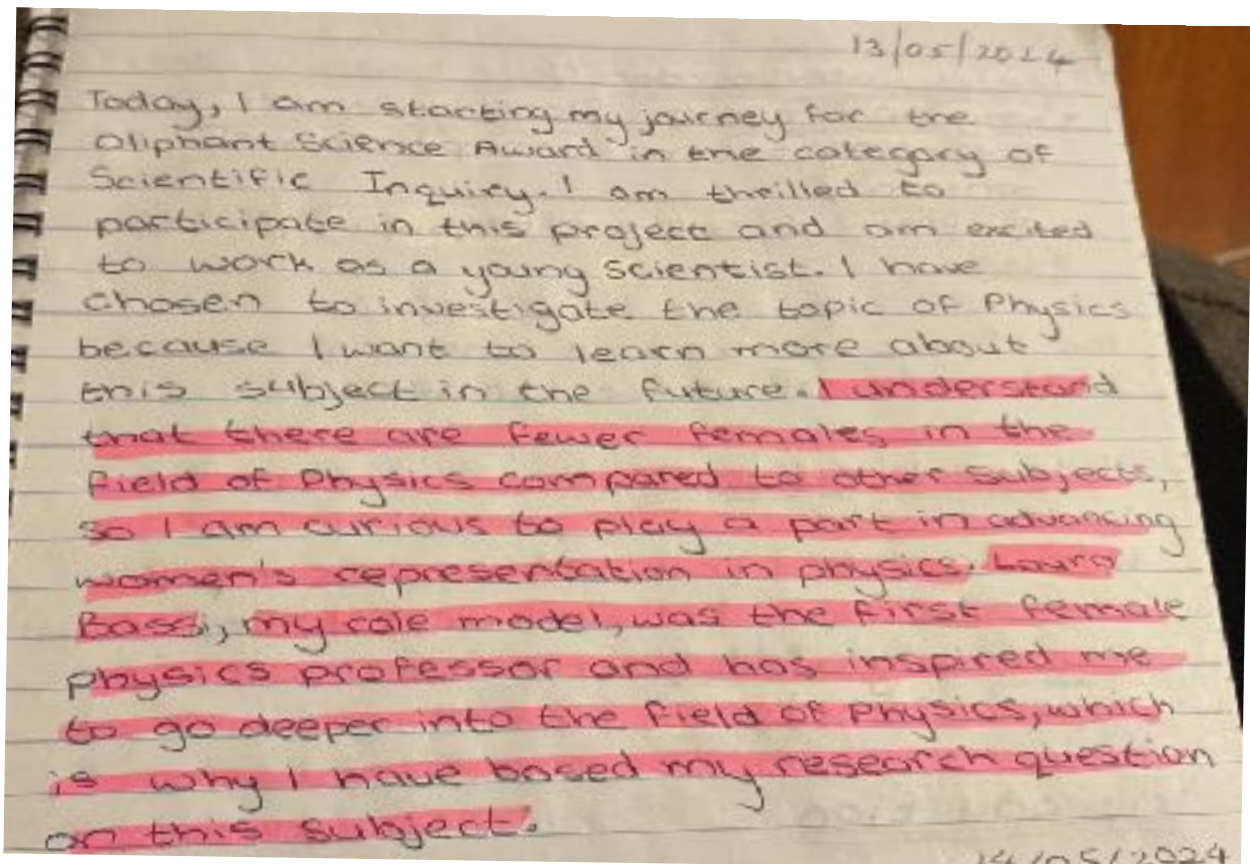 13/05/2024
Today, I am starting my journey for the
Oliphant Science Award in the category of
Scientific Inquiry. I am thrilled to
participate in this project and am excited
to work as a young scientist. I have
chosen to investigate the topic of Physics
because I want to learn more about
this subject in the future. I understand
that there are fewer females in the
field of Physics compared to other subjects,
so I am curious to play a part in advancing
women's representation in physics. Laura
Bassi, my role model, was the first female
physics professor and has inspired me
to go deeper into the field of Physics, which
is why I have based my research question
on this subject.
14/05/2024